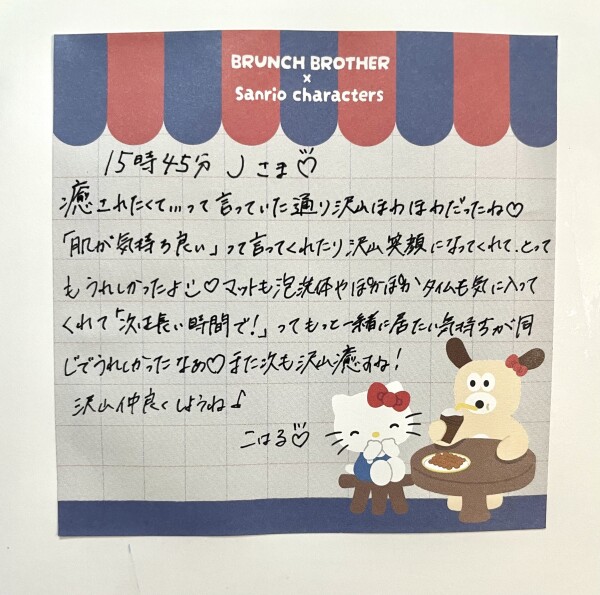 BRUNCH BROTHER
×
Sanrio characters
15時45分 Jさま♡
癒されたくて...って言っていた通り沢山ほわほわだったね♡
「肌が気持ち良い」って言ってくれたり沢山笑顔になってくれて、とって
もうれしかったよ♡マットも泡洗体やぽかぽかタイムも気に入って
くれて「次は長い時間で!」ってもっと一緒に居たい気持ちが同
じでうれしかったなぁ♡また次も沢山癒すね!
沢山仲良くしようね♪
こはる♡